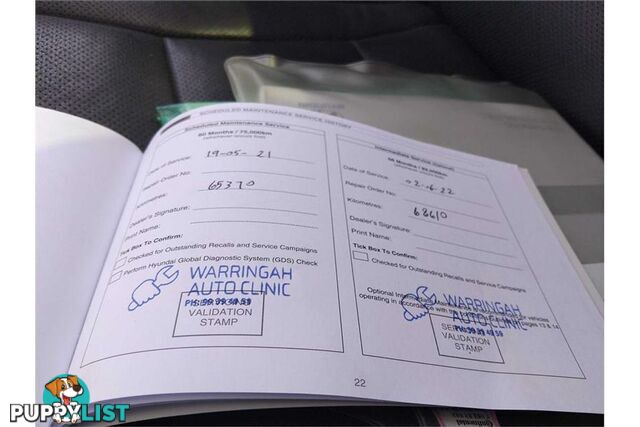 SCHEDULED MAINTENANCE SERVICE HISTORY
Scheduled Maintenance Service
60 Months / 75,000km
(whichever occurs first)
Date of Service: 19-05-21
Repair Order No:
Kilometres: 65370
Dealer's Signature:
Print Name:
Tick Box To Confirm:
Checked for Outstanding Recalls and Service Campaigns
Perform Hyundai Global Diagnostic System (GDS) Check
WARRINGAH
AUTO CLINIC
VALIDATION
STAMP
Intermediate Service (Optional)
Date of Service: 02-6-22
Repair Order No:
Kilometres: 68610
Dealer's Signature:
Print Name:
Tick Box To Confirm:
Checked for Outstanding Recalls and Service Campaigns
Optional Intermediate
operating in accordance with
pages 13 & 14
WARRINGAH
AUTO CLINIC
VALIDATION
STAMP
22
PUPPYLIST
www.puppylist.com.au